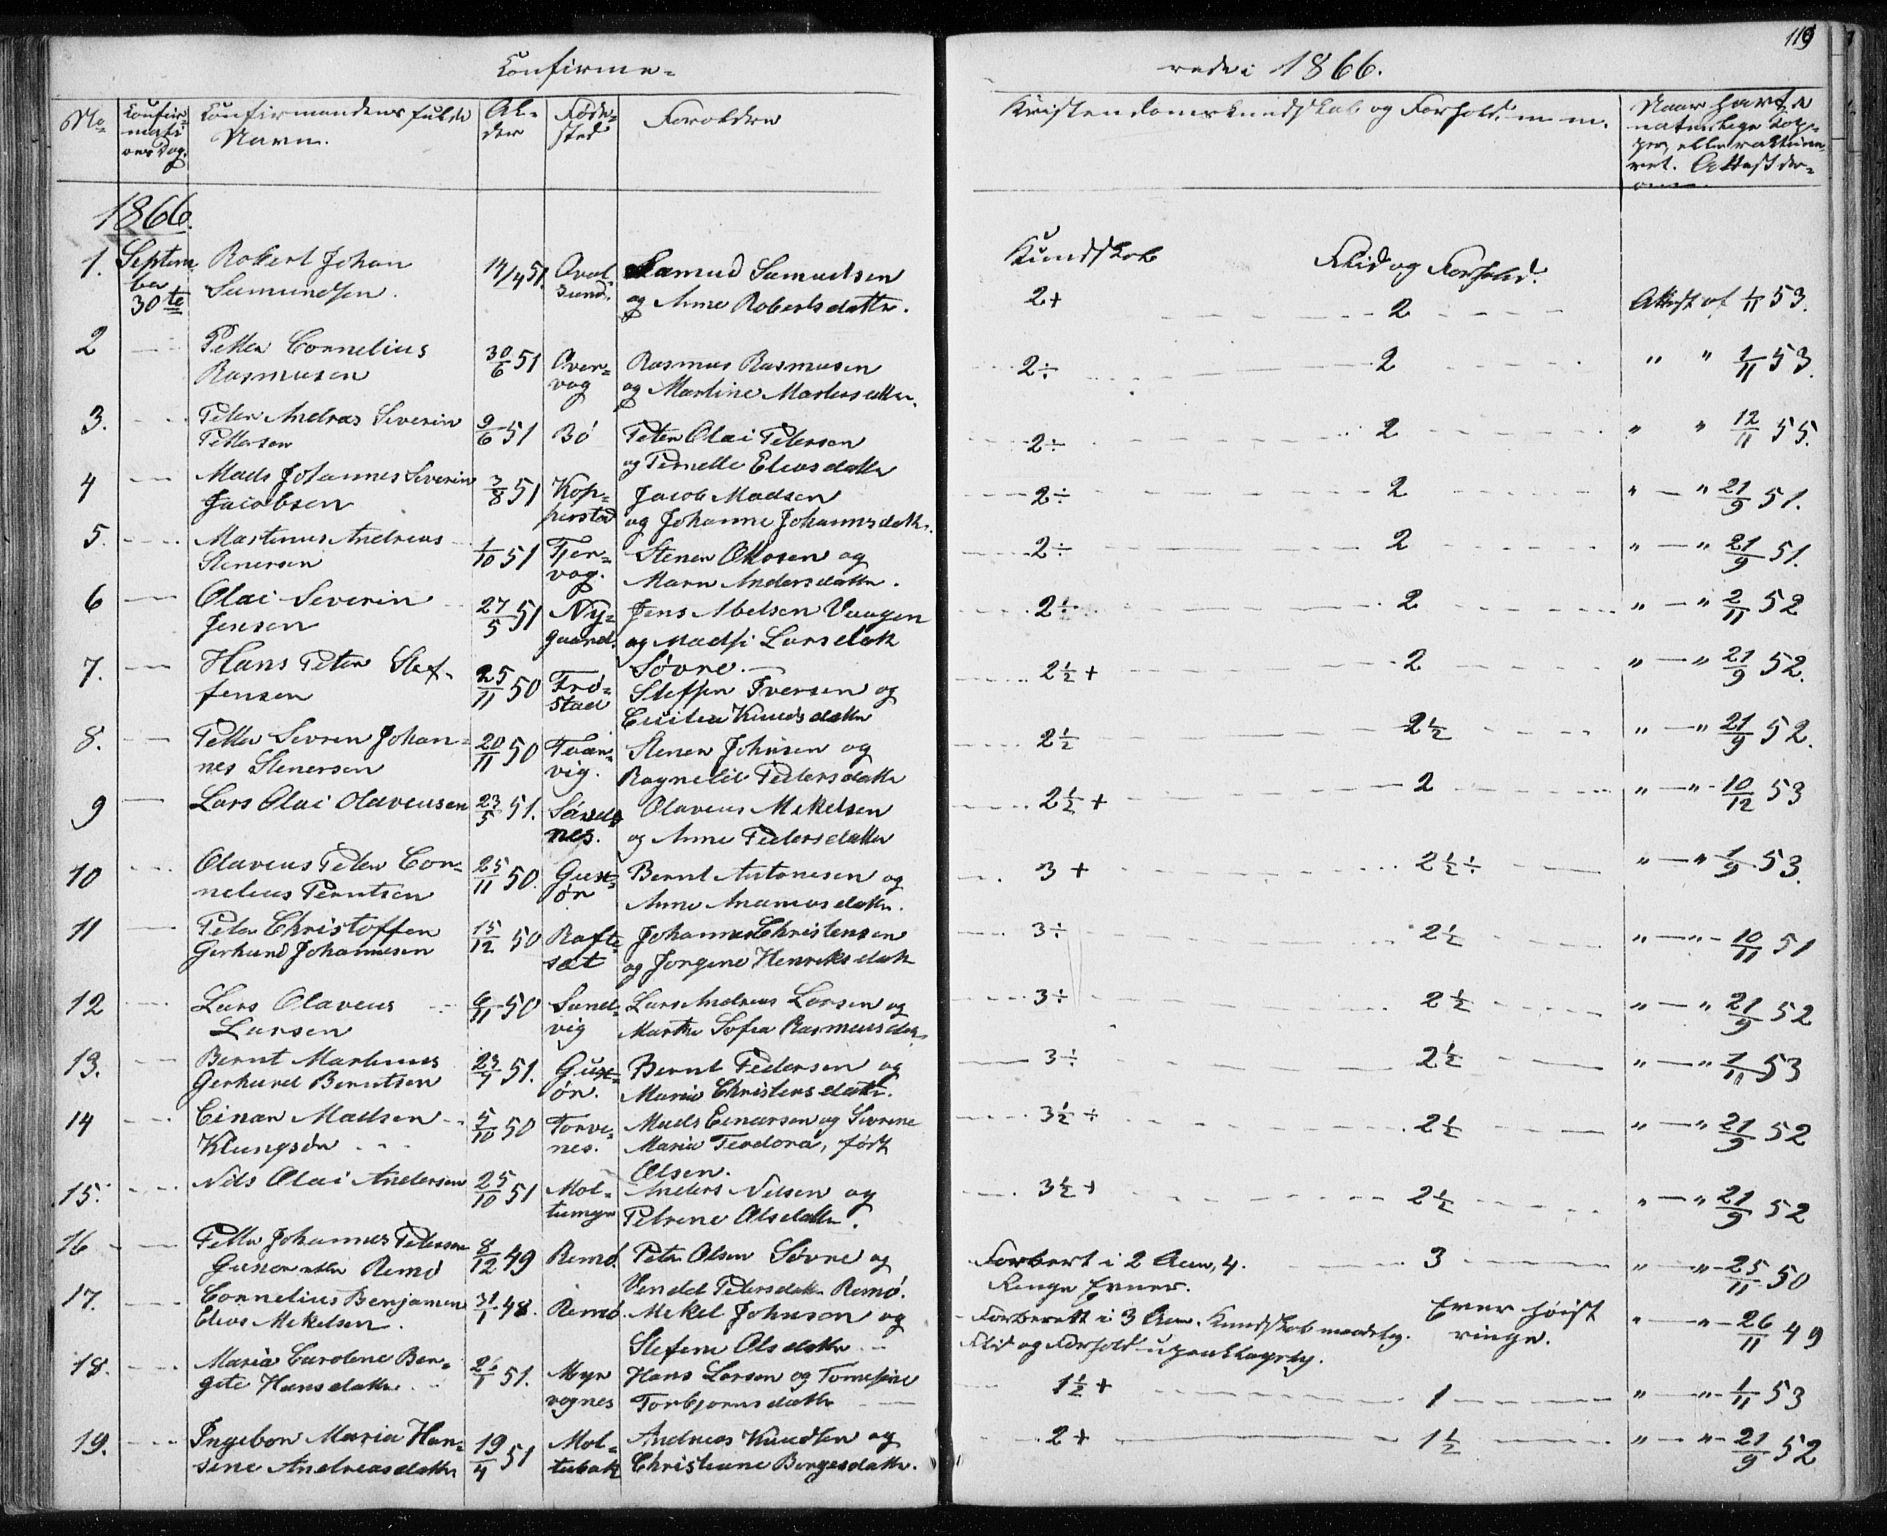 119
Confirme-
rede i 1866.
No
Confir-
mati
ons Dag.
Confirmandens fulde
Navn.
Al-
der
Føde-
sted
Forældre
Kristendomskundskab og Forhold. m. m.
Naar havt de
naturlige Kop-
per, eller vaktsine-
ret. Attest der-
om.
1866.
1. Septem
ber
30te
Robert Johan
Samundsen.
14/4 51.
Qval
sund.
Samund Samuelsen
og Anne Robertsdatter.
Kundskab
Flid og Forhold.
2+ 2 Attest af 1/11 53.
2 Petter Cornelius
Rasmusen
30/6 51
Over-
vag
Rasmus Rasmusen
og Martine Martersdatter.
2÷ 2 " " 1/11 53.
3. Peter Andreas Severin
Pettersen
9/6 51 Bö
Peter Olai Petersen
og Pernelle Eliasdatter
2÷ 2 " " 12/11 55.
4 Mads Johannes Severin
Jacobsen
3/8 51 Kop-
perstad
Jacob Madsen
og Johanne Johannsdatter.
2÷ 2 " " 21/9 51.
5. Martinus Andreas
Stenersen
1/10 51 Tjer-
vog.
Stener Olosen og
Maren Andersdatter.
2÷ 2 " " 21/9 51.
6 Olai Severin
Jensen
27/5 51 Ny-
gaard.
Jens Abelsen Vaagen
og Madsi Larsdatter
Sövre.
2÷ 2 " " 2/11 52
7. Hans Peter Stef-
fensen
25/11 50 Frö-
stad
Steffen Iversen og
Cecilia Knudsdatter
2½+ 2 " " 21/9 52.
8. Petter Sevren Johan-
nes Stenersen
20/11 50 Tvær-
vig.
Stener Johnsen og
Ragnelil Pedersdatter
2½ 2½ " " 21/9 52.
9 Lars Olai Olavensen
23/5 51. Sands
nes.
Olaveus Mekelsen
og Anne Pedersdatter
2½+ 2 " " 10/12 53
10 Olaveus Peter Cor-
nelius Berntsen
25/11 50. Gux-
ör
Bernt Antonesen og
Anne Ananiasdatter.
3+ 2½÷ " " 1/9 53.
11 Peter Christoffer
Gerhard Johannesen
15/12 50 Rafte
sæt
Johannes Christensen
og Jorgine Henriksdatter
3÷ 2½ " " 10/11 51
12 Lars Olaveus
Larsen
6/11 50 Sand-
vig
Lars Andreas Larsen og
Marthe Sofia Rasmusdatter
3÷ 2½ " " 21/9 52
13. Bernt Martinus
Gerhard Berntsen
23/7 51. Gux-
ör.
Bernt Pedersen og
Maria Christensdatter.
3÷ 2½ " " 1/11 53
14 Einar Madsen
Klungsör
5/10 50 Torve-
nes.
Mads Einarsen og Sivrine
Maria Teodora, født
Olsen.
3½÷ 2½ " " 21/9 52
15. Nils Olai Andersen
25/10 51 Mol-
temyr
Anders Nilsen og
Petrine Olsdatter.
3½+ 2½ " " 21/9 52
16 Petter Johannes Petersen
Remö
8/12 49 Remö.
Peter Olsen Sövre og
Vendel Petersdatter Remö.
Forberet i 2 Aar, 4.
Ringe Evner.
3 " " 25/11 50
17. Cornelius Benjamin
Elias Mekelsen.
31/1 48. Remö.
Mekel Johnson og
Stefeni Olsdatter
Forberett i 3 Aar. Kundskab maadelig.
Flid og Forhold upaaklagelig.
Evner høist
ringe.
" " 26/11 49
18. Maria Carolene Ber-
gete Hansdatter
26/1 51. Myr
vognes
Hans Larsen og Tomesine
Torbjornsdatter
1½+ 1 " " 1/11 53
19. Ingebor Maria Han-
sine Andreasdatter
19/4 51 Mol-
tubak
Andreas Knudsen og
Christiane Borgesdatter.
2+ 1½ " " 21/9 52